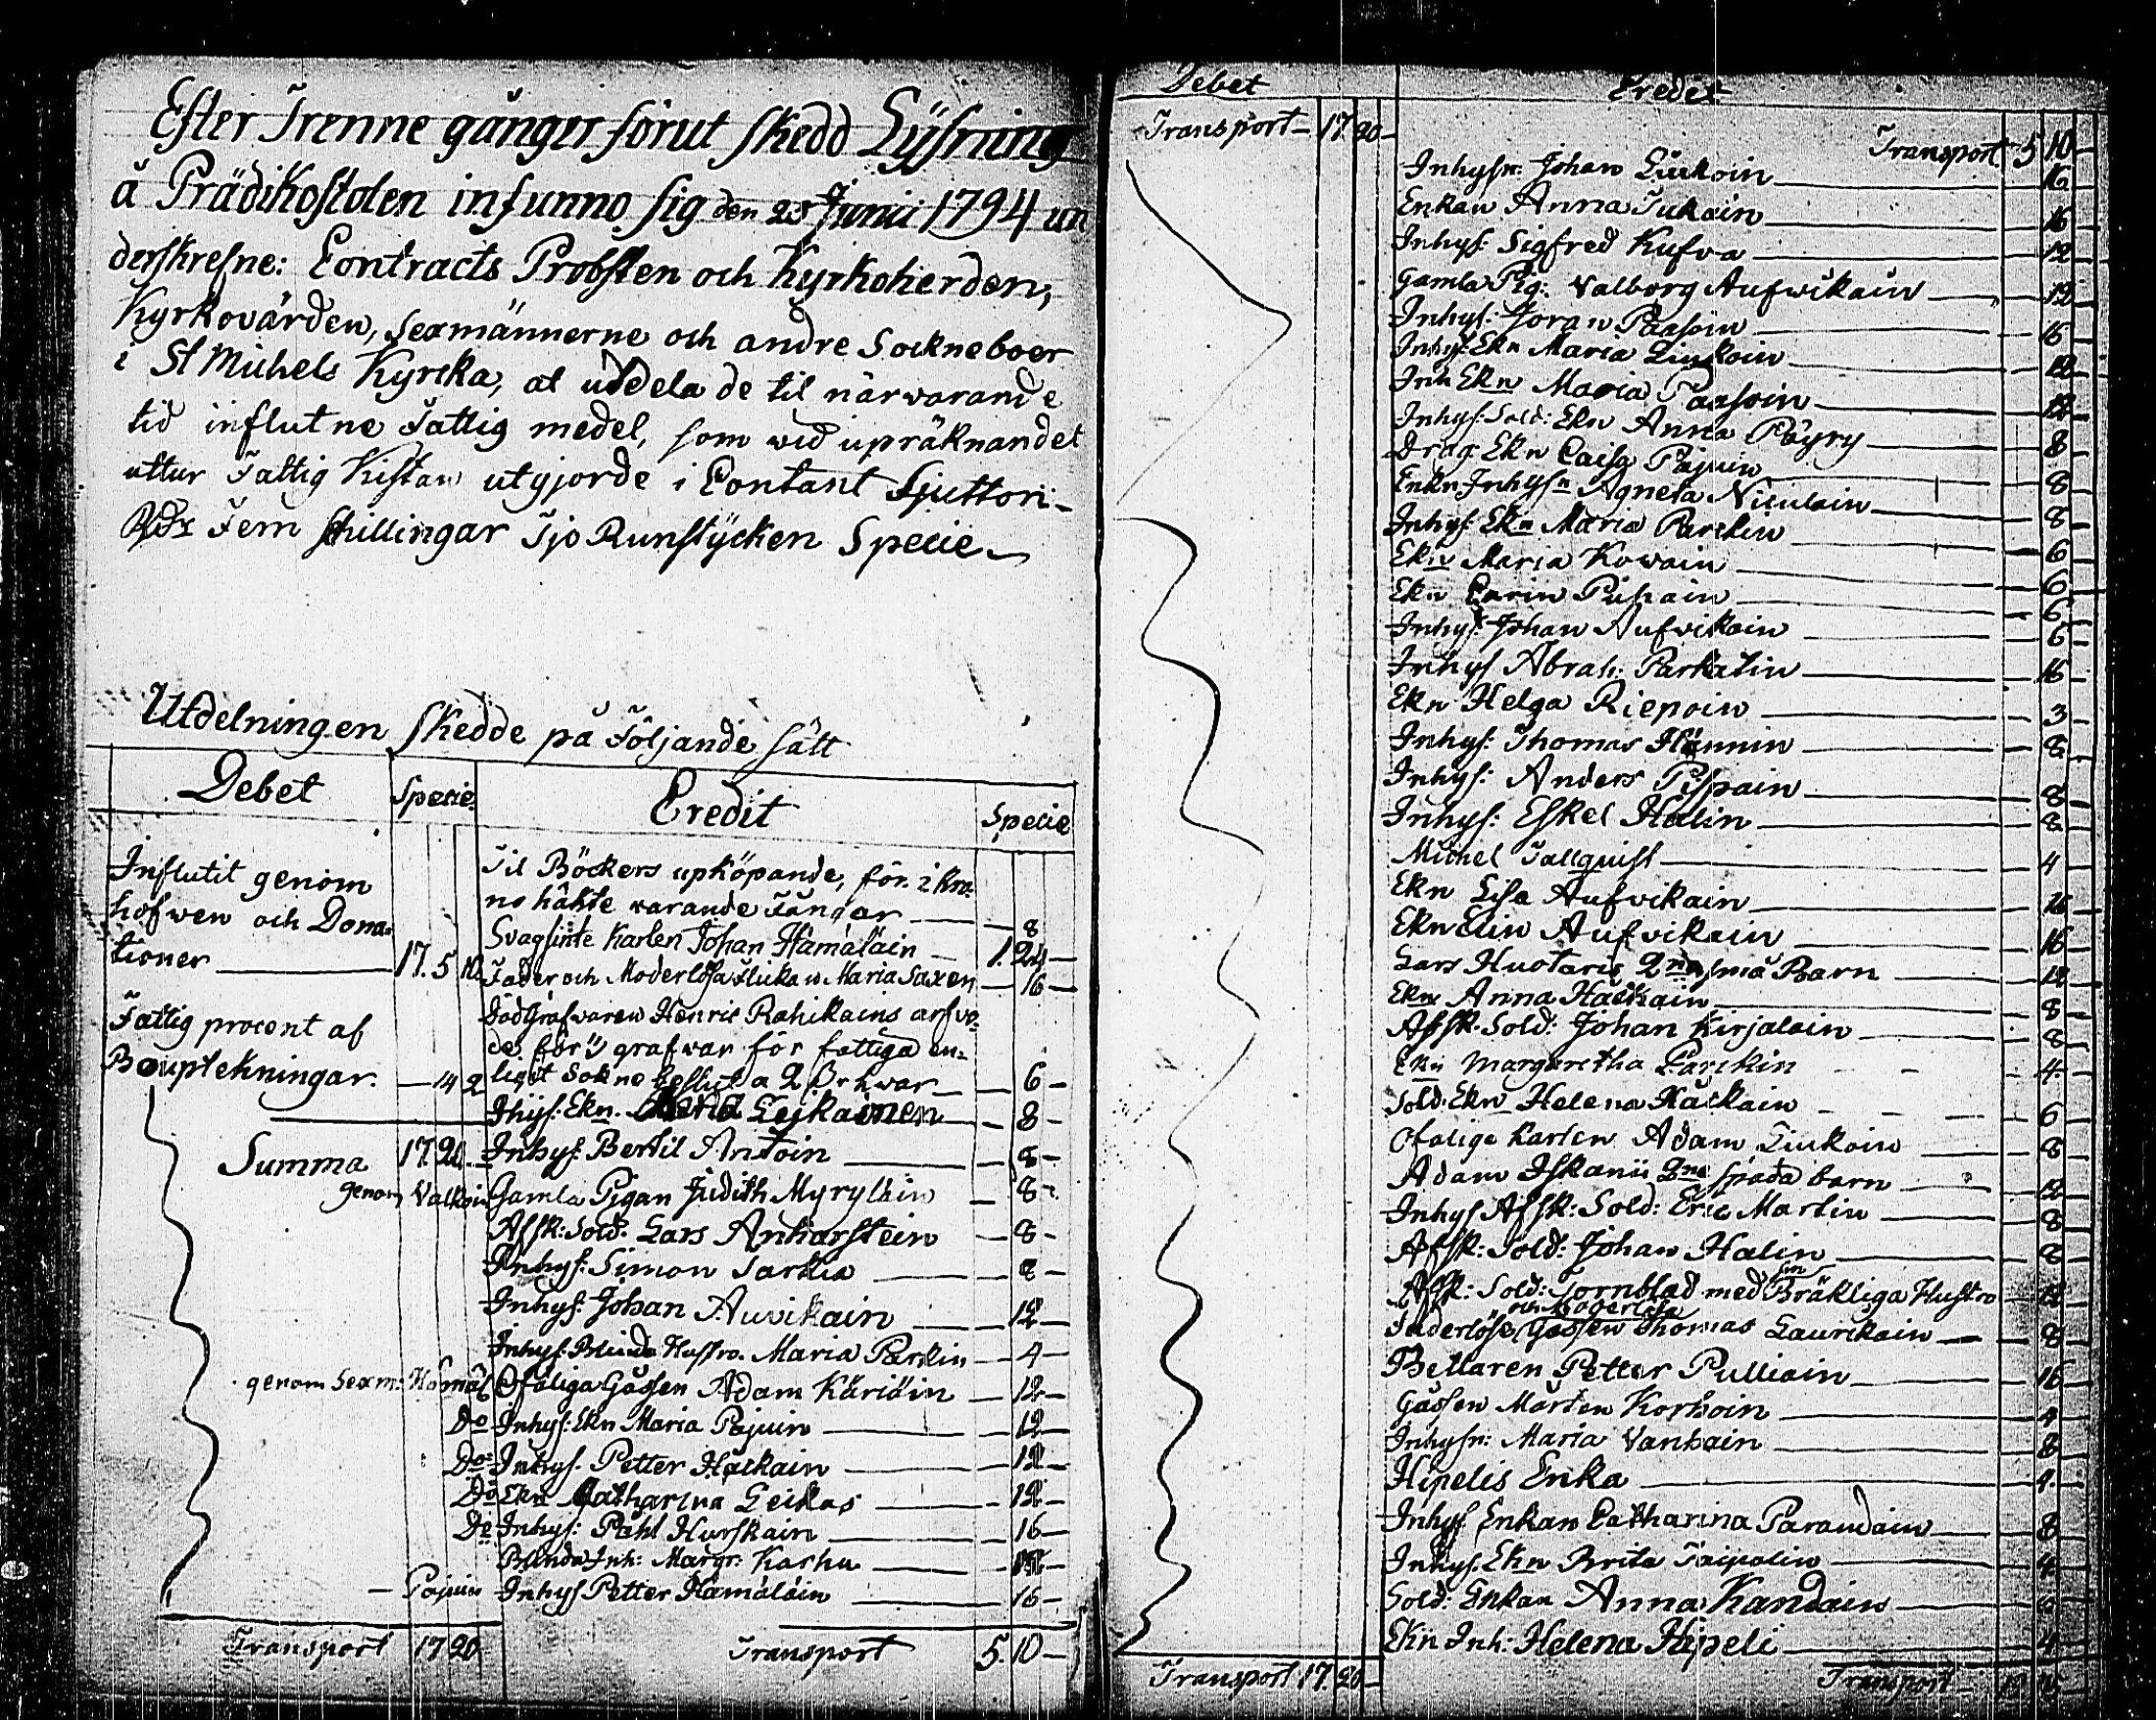 Efter Trenne gånger förut skedd Lysning
å Prädikostolen infunno sig den 25 Junii 1794 un
derskrefne: Contracts Probsten och Kyrkoherden,
Kyrkovärden, Sexmännerne och andre Sockneboer
i St Michels Kyrcka, at utdela de til närvarande
tid influtne Fattig medel, som wid upräknandet
uttur Fattig Kistan utgjorde i Contant Sjutton
Rdr Fem skillingar Tjo Runstycken Specie
Utdelningen skedde på Följande sätt
Debet Specie Credit Specie
Influtit genom
hofwen och Dona-
tioner 17. 5 10
Fattig procent af
Bouptekningar. 14 2
Summa 17. 20
genom Valkoin
genom Sexm: Hämäl
Do
Do
Do
Do
Pajuin
Transport 17 20
Til Böckers upköpande, för i kro-
no häkte warande Fångar 8
Svagsinte Karlen Johan Hämäläin 1. 24
Fader och Moderlösa Flickan Maria Saxen 16
Död Grafvaren Henric Rahikains arfvo-
de för grafwar för fattiga en-
ligt Sokne beslut a 2 hwar 6
Inhys: Ekn. Leikainen 8
Inhys: Bertil Antoin 8
Gamla Pigan Judith Myryläin 8
Afsk: Sold: Lars Anharstein 8
Inhys: Simon Sarkia 8
Inhys: Johan Auvikain 12
Inhys: Blinda Hustro. Maria Parkin 4
Ofäliga Gåssen Adam Käriäin 12
Inhys: Ekn Maria Pajuin 12
Inhys. Petter Häckain 12
Ekn Catharina Leikas 12
Inhys: Påhl Hurskain 16
Blinda Inh: Margr: Karhu
Inhys Petter Hämäläin 16
Transport 5. 10
Debet Credit
Transport 17. 20
Transport 5 10
Inhysn: Johan Liukoin 16
Enkan Anna Tukain 16
Inhys: Sigfred Kufva 12
Gamla Pig: Valborg Aufvikain 12
Inhys: Joran Paasoin 16
Inhys: Ekn Maria Liukoin 12
Inh Ekn Maria Paasoin 12
Inhys: Sold: Ekn Anna Pöyry 8
Drag: Ekn Caisa Pajuin 8
Enkn Inhysn Agneta Niculain 8
Inhys: Ekn Maria Parckin 6
Ekn Maria Kowain 6
Ekn Carin Pihain 6
Inhys: Johan Aufvikain 6
Inhys Abrah: Parkatin 16
Ekn Helga Riepoin 3
Inhys: Thomas Hännin 8
Inhys: Anders Pispain 8
Inhys: Eskel Halin 8
Michel Tallquist 4
Ekn Lisa Aufvikain 16
Ekn Elin Aufvikain 16
Lars Huotaris 2ne små Barn 12
Ekn Anna Häckain 8
Afsk. Sold: Johan Kirjalain 8
Ekn Margaretha Larckin 4
Sold: Ekn Helena Häckain 6
Ofäliga Karlen Adam Liukoin 8
Adam Iskanii 2ne späda barn 12
Inhys Afsk: Sold: Eric Martin 8
Afsk: Sold: Johan Halin 8
Afsk: Sold: Tornblad med sin Bräkliga Hustro 12
Faderlöse och Moderlösa Gossen Thomas Laurikain 8
Bettaren Petter Pulliain 16
Gåssen Mårten Korhoin 4
Inhysn: Maria Vanhain 8
Hipelis Enka 4
Inhys Enkan Catharina Parandain 8
Inhys. Ekn Brita Taipalin 4
Sold: Enkan Anna Kandain
Ekn Inh: Helena Hipeli 4
Transport 17. 20
Transport